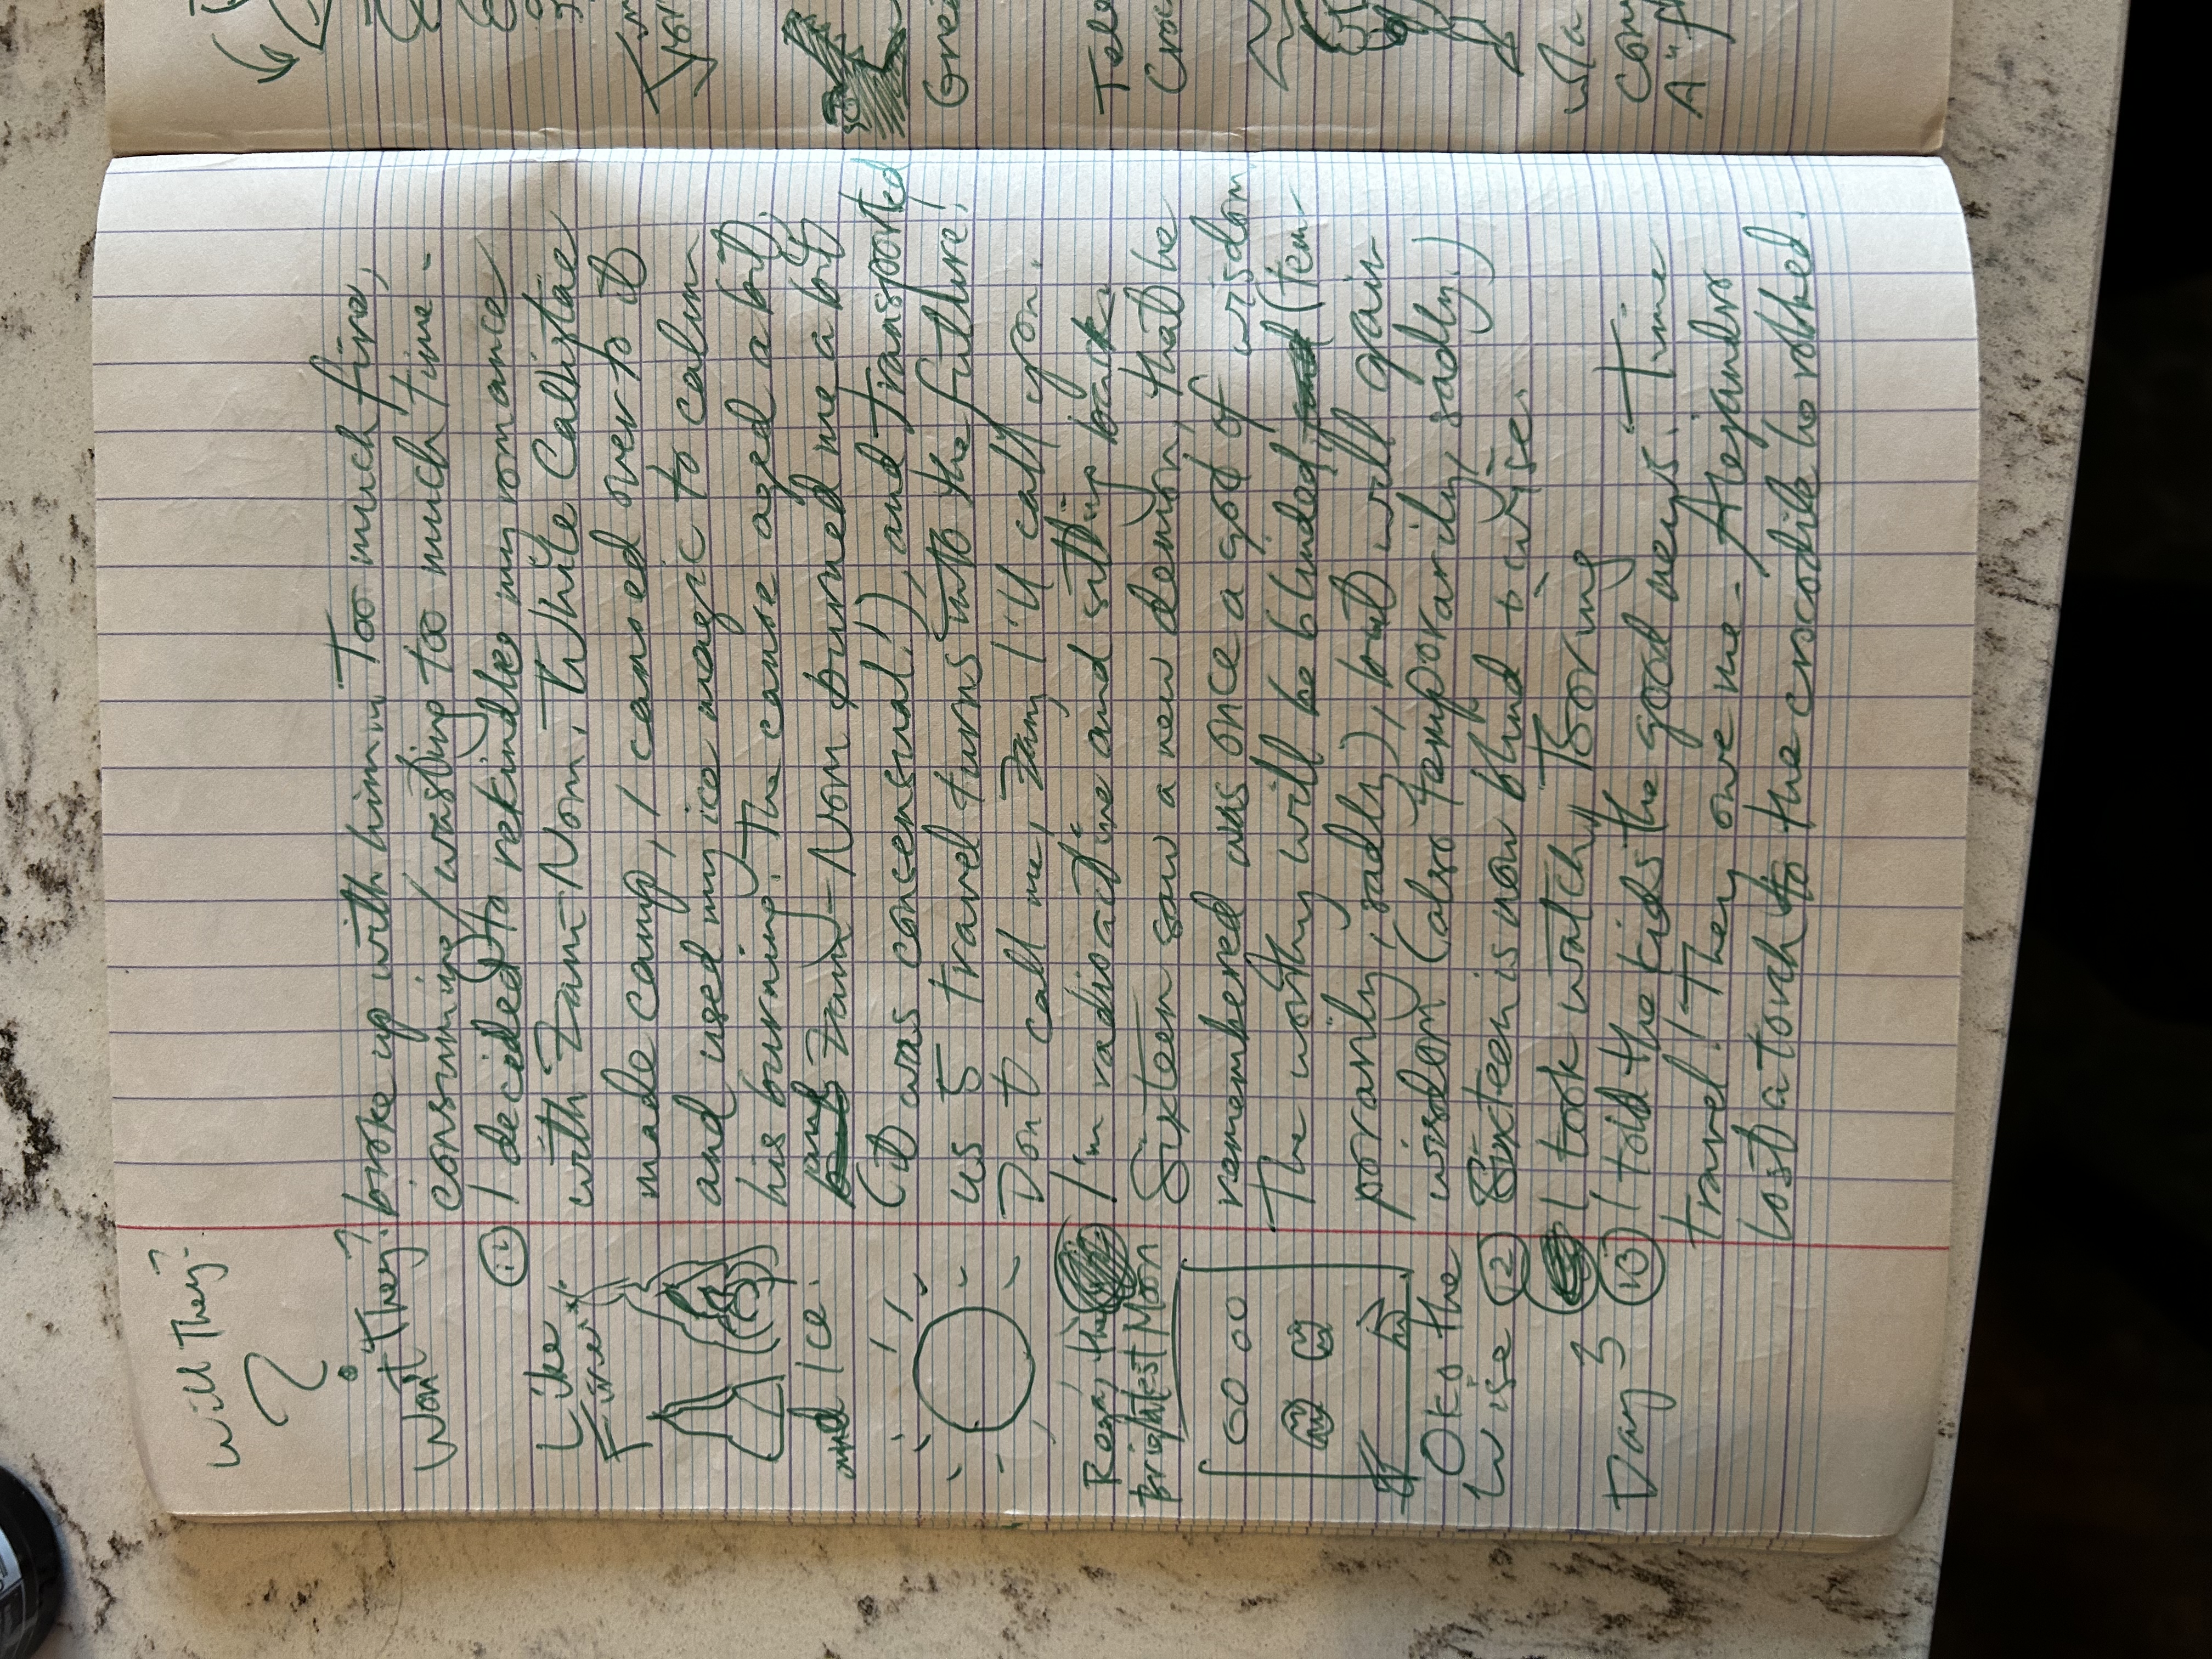 Will They?
Won't They?
broke up with him. Too much fire,
consuming/wasting too much time.
11 I decided to rekindle my romance
with Dam-Nom. While Callistae
made camp, I canoed over to it
and used my ice magic to calm
his burning. The canoe aged a bit,
and Dam-Nom burned me a bit
(it was consensual!), and transported
us 5 travel turns into the future!
Don't call me, Dam, I'll call you.
I'm radiositive and sitting back
Sixteen saw a new demon, that he
remembered was once a god of wisdom
The worthy will be blinded (tem-
porarily, sadly), but will gain
wisdom (also temporarily, sadly.)
Sixteen is now blind & wise.
I took watch, Boring
13 I told the kids the good news. Time
travel! They owe me. Alejandro
lost a torch to the crocodile he robbed.
Like
Fire
and Ice.
Rogaj the
brightest Moon
Oko the
Wise 12
Day 5